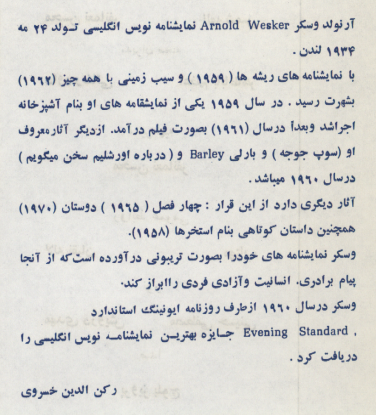 آرنولد وسکر Arnold Wesker نمایشنامه نویس انگلیسی تـولد ۲۴ مه
۱۹۳۴ لندن .
با نمایشنامه های ریشه ها ( ۱۹۵۹ ) و سیب زمینی با همه چیز (۱۹۶۲)
بشهرت رسید . در سال ۱۹۵۹ یکی از نمایشقامه های او بنام آشپزخانه
اجراشد وبعداً درسال (۱۹۶۱) بصورت فیلم درآمد. ازدیگر آثارمعروف
او (سوپ جوجه ) و بارلی Barley و ( درباره اورشلیم سخن میگویم )
درسال ۱۹۶۰ میباشد .
آثار دیگری دارد از این قرار : چهار فصل ( ۱۹۶۵ ) دوستان (۱۹۷۰)
همچنین داستان کوتاهی بنام استخرها (۱۹۵۸).
وسکر نمایشنامه های خودرا بصورت تریبونی درآورده است‌که از آنجا
پیام برادری. انسانیت وآزادی فردی راابراز کند.
وسکر درسال ۱۹۶۰ ازطرف روزنامه ایونینگ استاندارد
. Evening Standard جـایزه بهتریـن نمایشنامـه نویس انگلیسی را
دریافت کرد .
رکن الدین خسروی